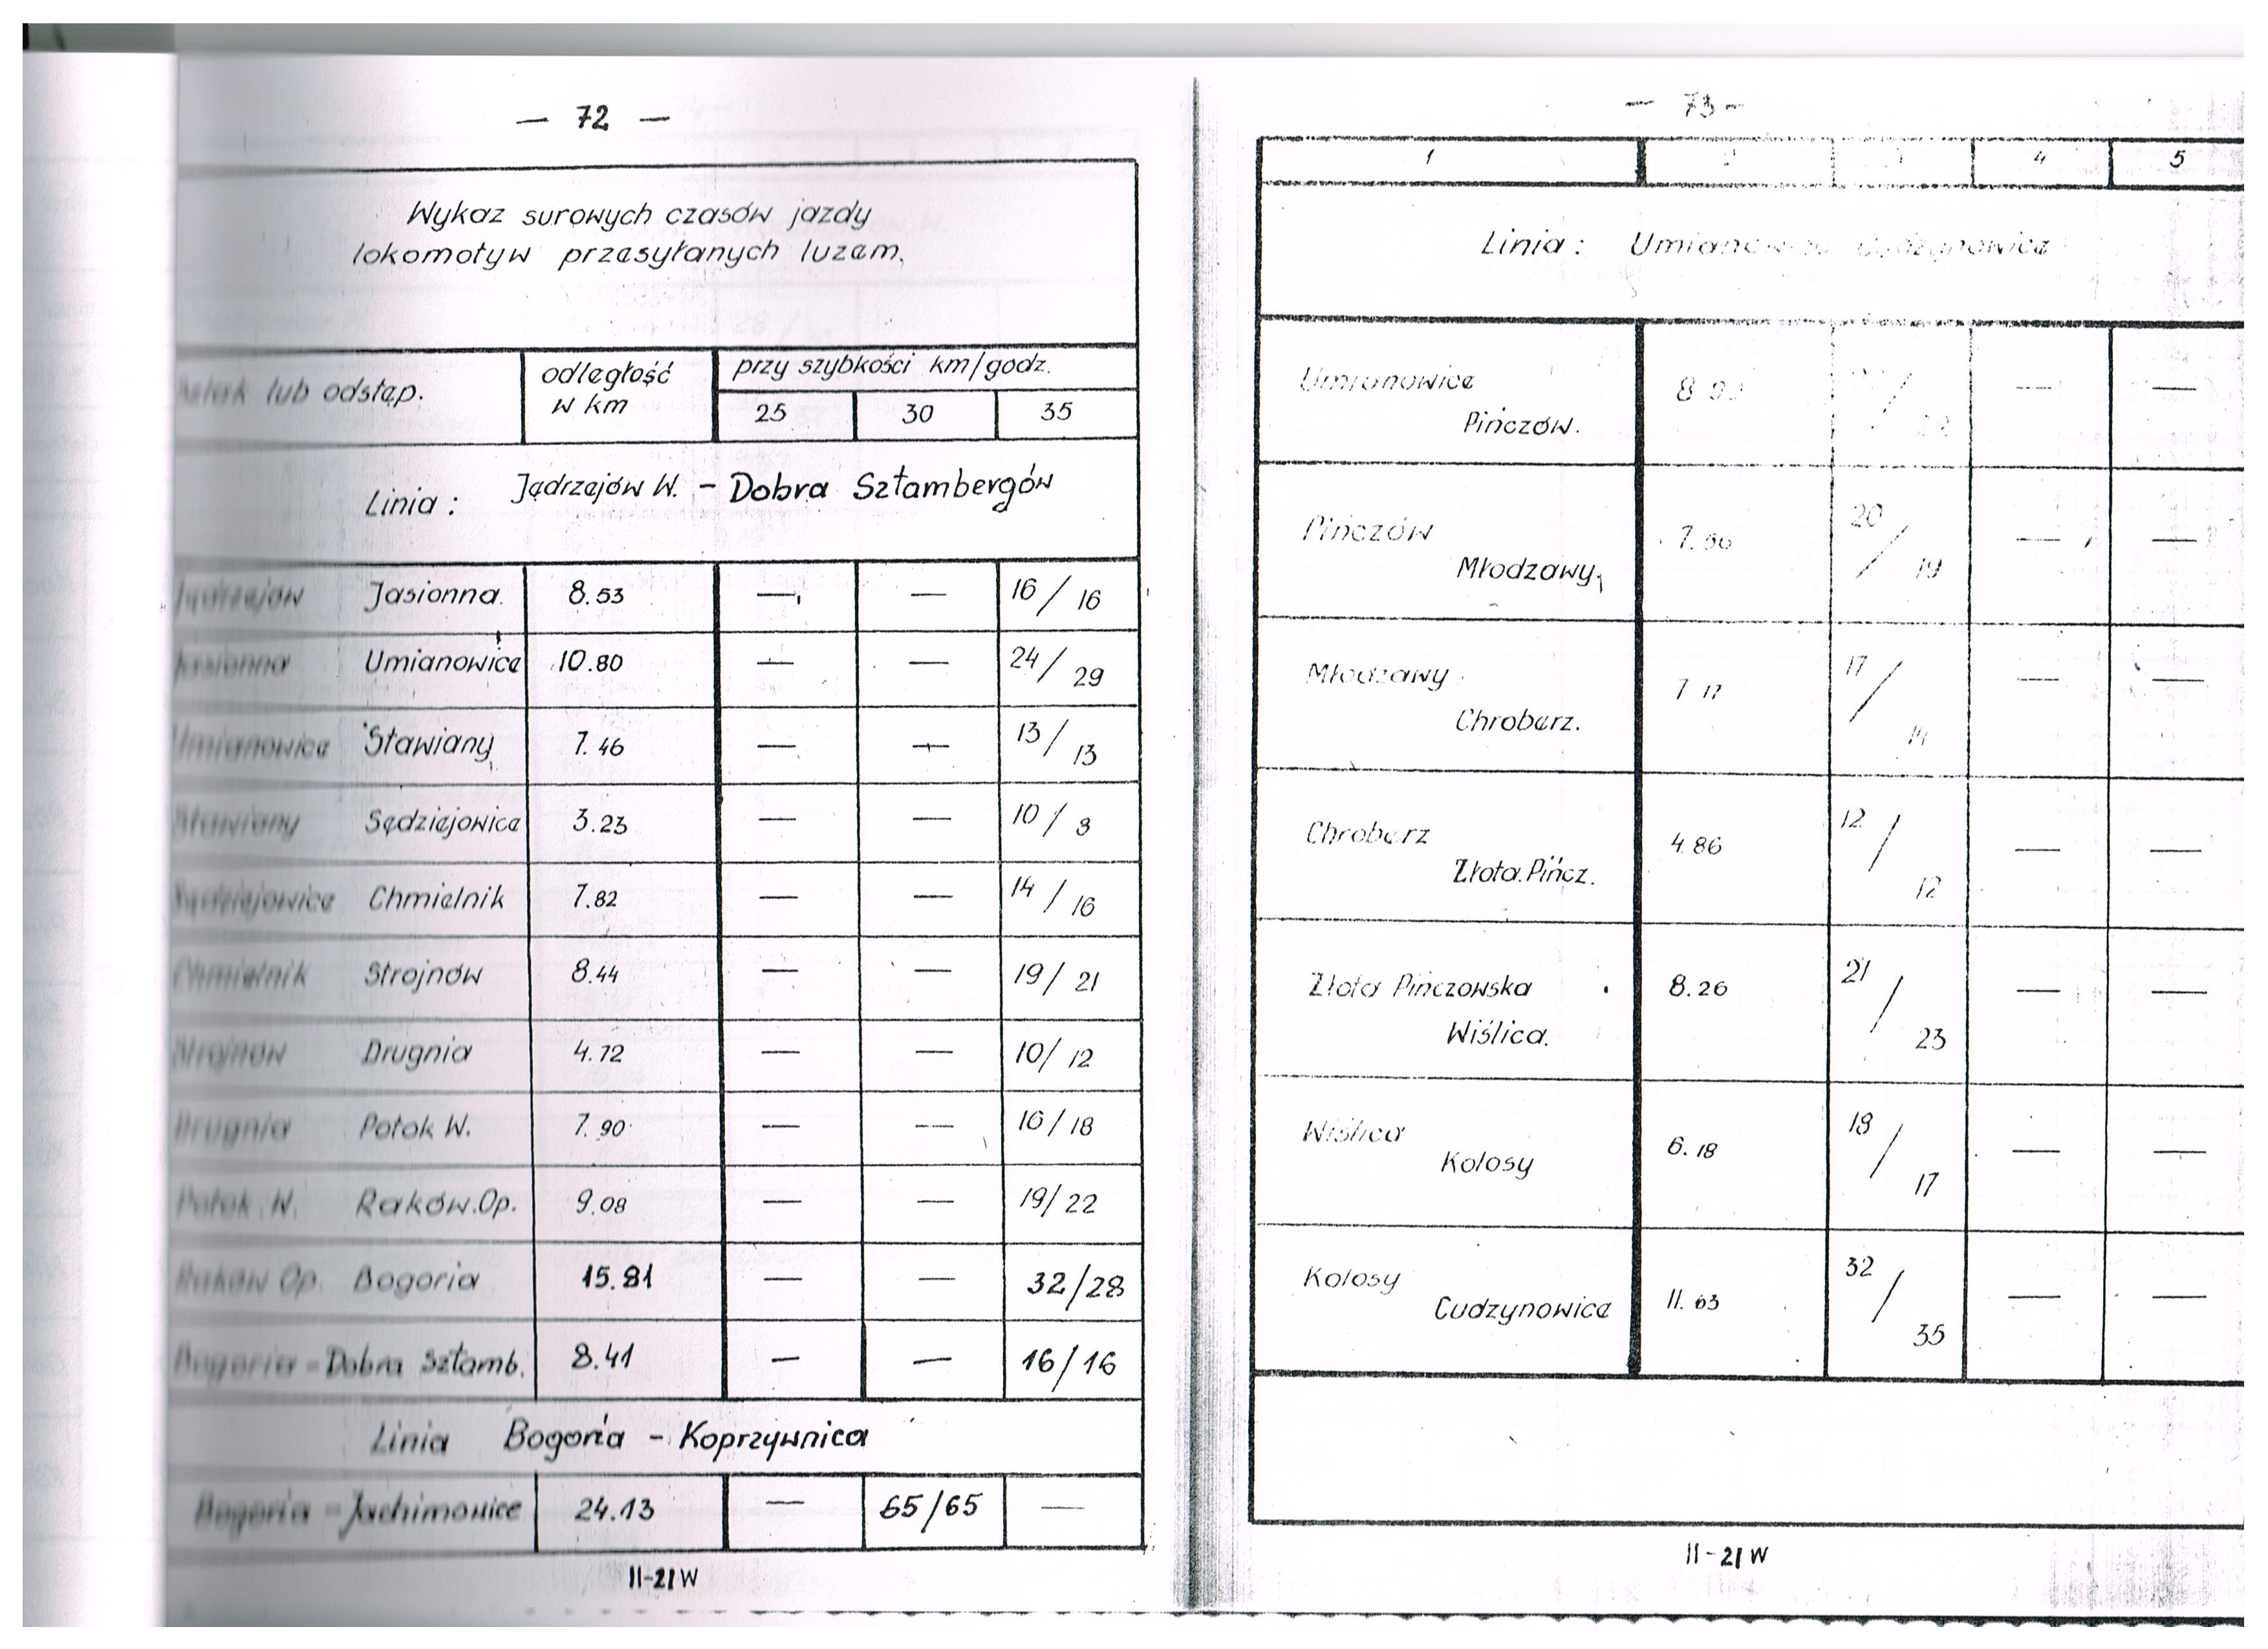 — 72 —
Wykaz surowych czasów jazdy
lokomotyw przesyłanych luzem.
lub odstęp. odległość w km przy szybkości km/godz.
25 30 35
Linia: Jędrzejów W. - Dobra Sztambergów
Jędrzejów Jasionna 8.53 — — 16/16
Jasionna Umianowice 10.80 — — 24/29
Umianowice Stawiany 7.46 — — 13/13
Stawiany Sędziejowice 3.23 — — 10/8
Sędziejowice Chmielnik 7.82 — — 14/16
Chmielnik Strojnów 8.44 — — 19/21
Strojnów Drugnia 4.72 — — 10/12
Drugnia Potok W. 7.90 — — 16/18
Potok W. Raków.Op. 9.08 — — 19/22
Raków Op. Bogoria 15.81 — — 32/28
Bogoria - Dobra Sztamb. 8.41 — — 16/16
Linia Bogoria - Koprzywnica
Bogoria - Jachimowice 24.13 — 65/65 —
II-21W
— 73 —
1 4 5
Linia:
Umianowice
Pińczów. — —
Pińczów
Młodzawy. 20/19 — —
Młodzawy
Chroberz. 7 17 17/14 — —
Chroberz
Złota.Pińcz. 4.86 12/12 — —
Złota Pińczowska
Wiślica. 8.26 21/23 — —
Wiślica
Kolosy 6.18 18/17 — —
Kolosy
Cudzynowice 11.63 32/35 — —
II-21W